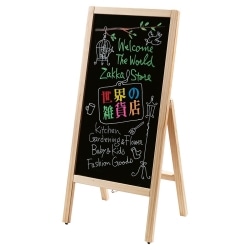 Welcome
The World
Zakka Store
世界の
雑貨店
Kitchen
Gardening & Flower
Baby & Kids
Fashion Goods